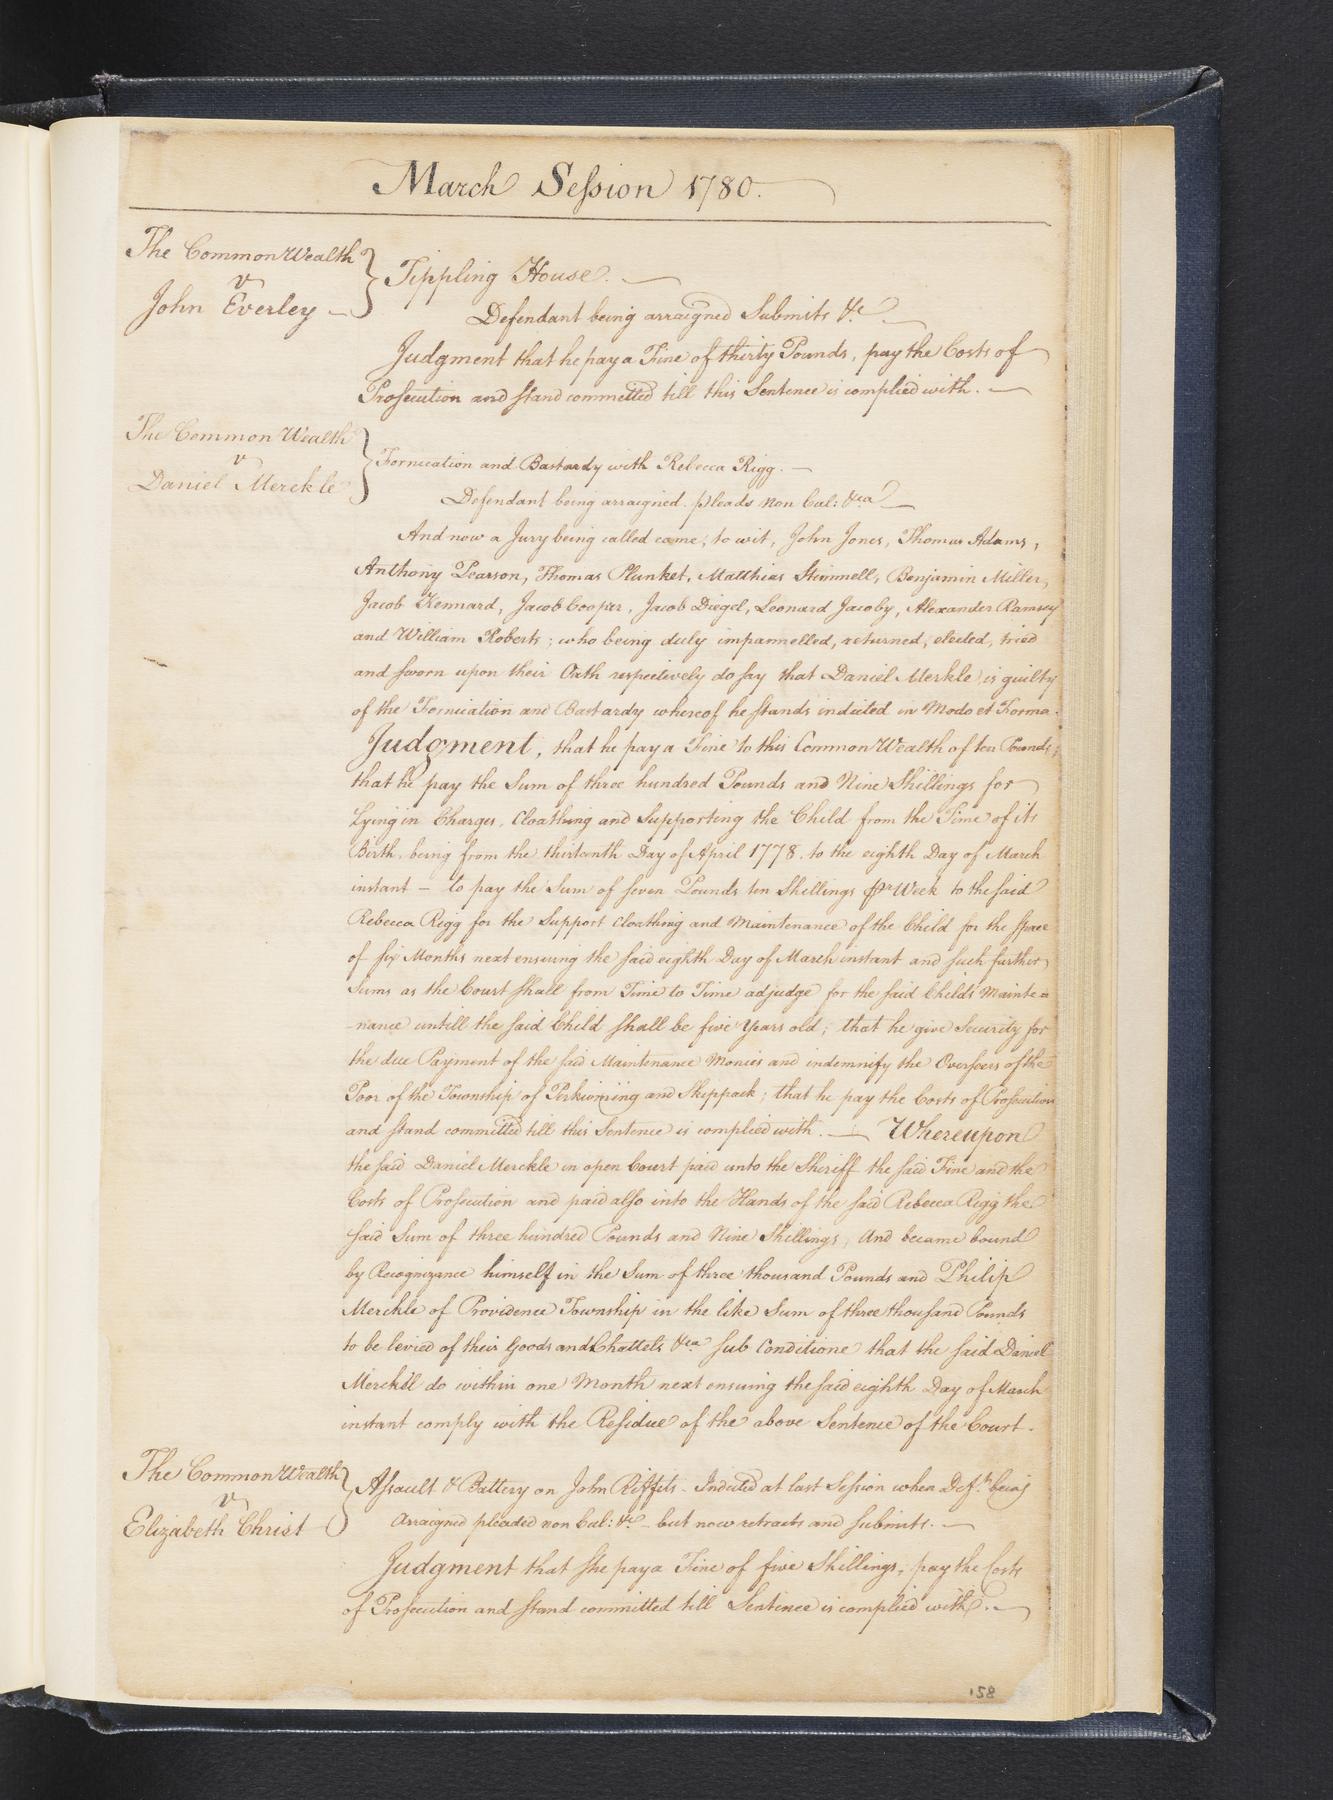 March Session 1780.
The CommonWealth
v
John Everley
Tippling House.
Defendant being arraigned Submits &c
Judgment that he pay a Fine of thirty Pounds, pay the Costs of
Prosecution and stand committed till this Sentence is complied with.
The Common Wealth
v
Daniel Merckle
Fornication and Bastardy with Rebecca Rigg.
Defendant being arraigned. pleads non Cul: &ca
And now a Jury being called came, to wit, John Jones, Thomas Adams,
Anthony Pearson, Thomas Plunket, Matthias Stimmell, Benjamin Miller,
Jacob Kennard, Jacob Cooper, Jacob Diegel, Leonard Jacoby, Alexander Ramsey
and William Roberts; who being duly impannelled, returned, elected, tried
and sworn upon their Oath respectively do say that Daniel Merkle is guilty
of the Fornication and Bastardy whereof he stands indicted in Modo et Forma.
Judgment, that he pay a Fine to this CommonWealth of ten Pounds;
that he pay the Sum of three hundred Pounds and Nine Shillings for
Lying in Charges, Cloathing and Supporting the Child from the Time of its
Birth, being from the thirteenth Day of April 1778. to the eighth Day of March
instant – to pay the Sum of seven Pounds ten Shillings pr Week to the said
Rebecca Rigg for the Support Cloathing and Maintenance of the Child for the space
of six Months next ensuing the said eighth Day of March instant and such further
Sums as the Court shall from Time to Time adjudge for the said Childs Mainte=
-nance untill the said Child shall be five Years old; that he give Security for
the due Payment of the said Maintenance Monies and indemnify the Overseers of the
Poor of the Township of Perkioming and Skippack; that he pay the Costs of Prosecution
and stand committed till this Sentence is complied with. — Whereupon
the said Daniel Merckle in open Court paid unto the Sheriff the said Fine and the
Costs of Prosecution and paid also into the Hands of the said Rebecca Rigg the
said Sum of three hundred Pounds and Nine Shillings, And became bound
by Recognizance himself in the Sum of three thousand Pounds and Philip
Merckle of Providence Township in the like Sum of three thousand Pounds
to be levied of their Goods and Chattels &ca sub Conditione that the said Daniel
Merckel do within one Month next ensuing the said eighth Day of March
instant comply with the Residue of the above Sentence of the Court.
The CommonWealth
v
Elizabeth Christ
Assault & Battery on John Riffets - Indicted at last Session when Deft. being
Arraigned pleaded non Cul: &c – but now retracts and submits.
Judgment that she pay a Fine of five Shillings, pay the Costs
of Prosecution and stand committed till Sentence is complied with.
158